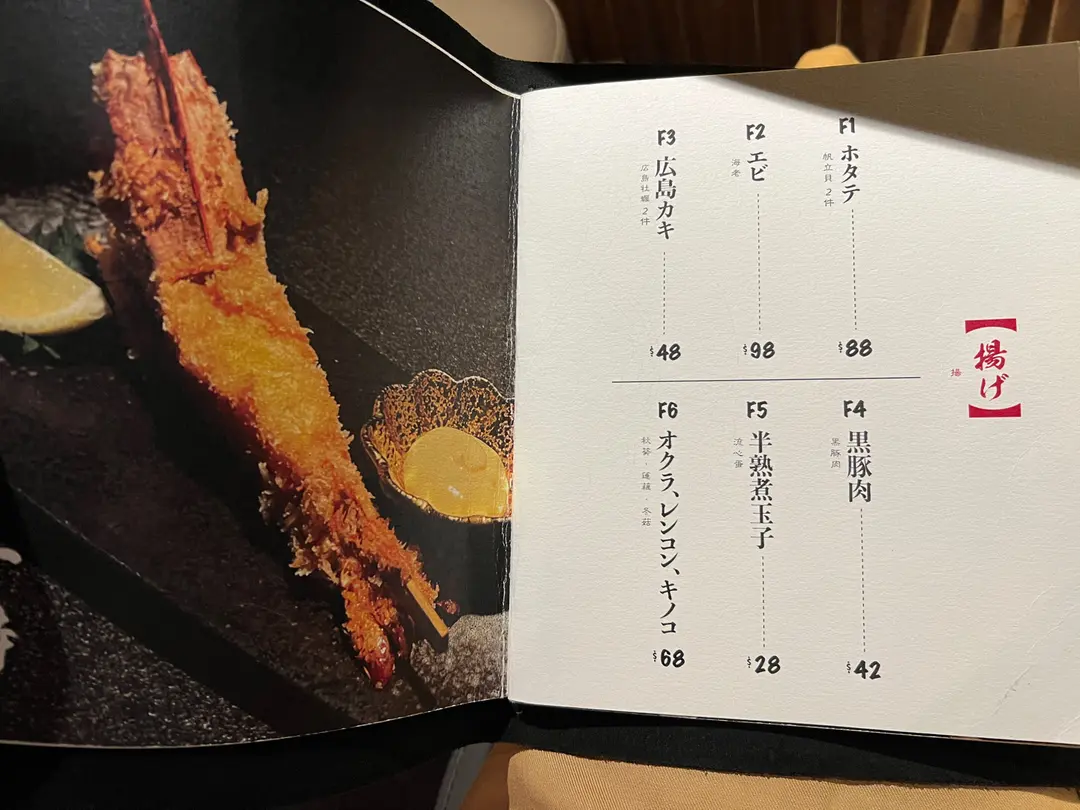 【揚げ】
揚
F1
ホタテ
帆立貝 2件
$88
F2
エビ
海老
$98
F3
広島カキ
広島牡蠣 2件
$48
F4
黒豚肉
黒豚肉
$42
F5
半熟煮玉子
流心蛋
$28
F6
オクラ、レンコン、キノコ
秋葵、蓮藕、冬菇
$68